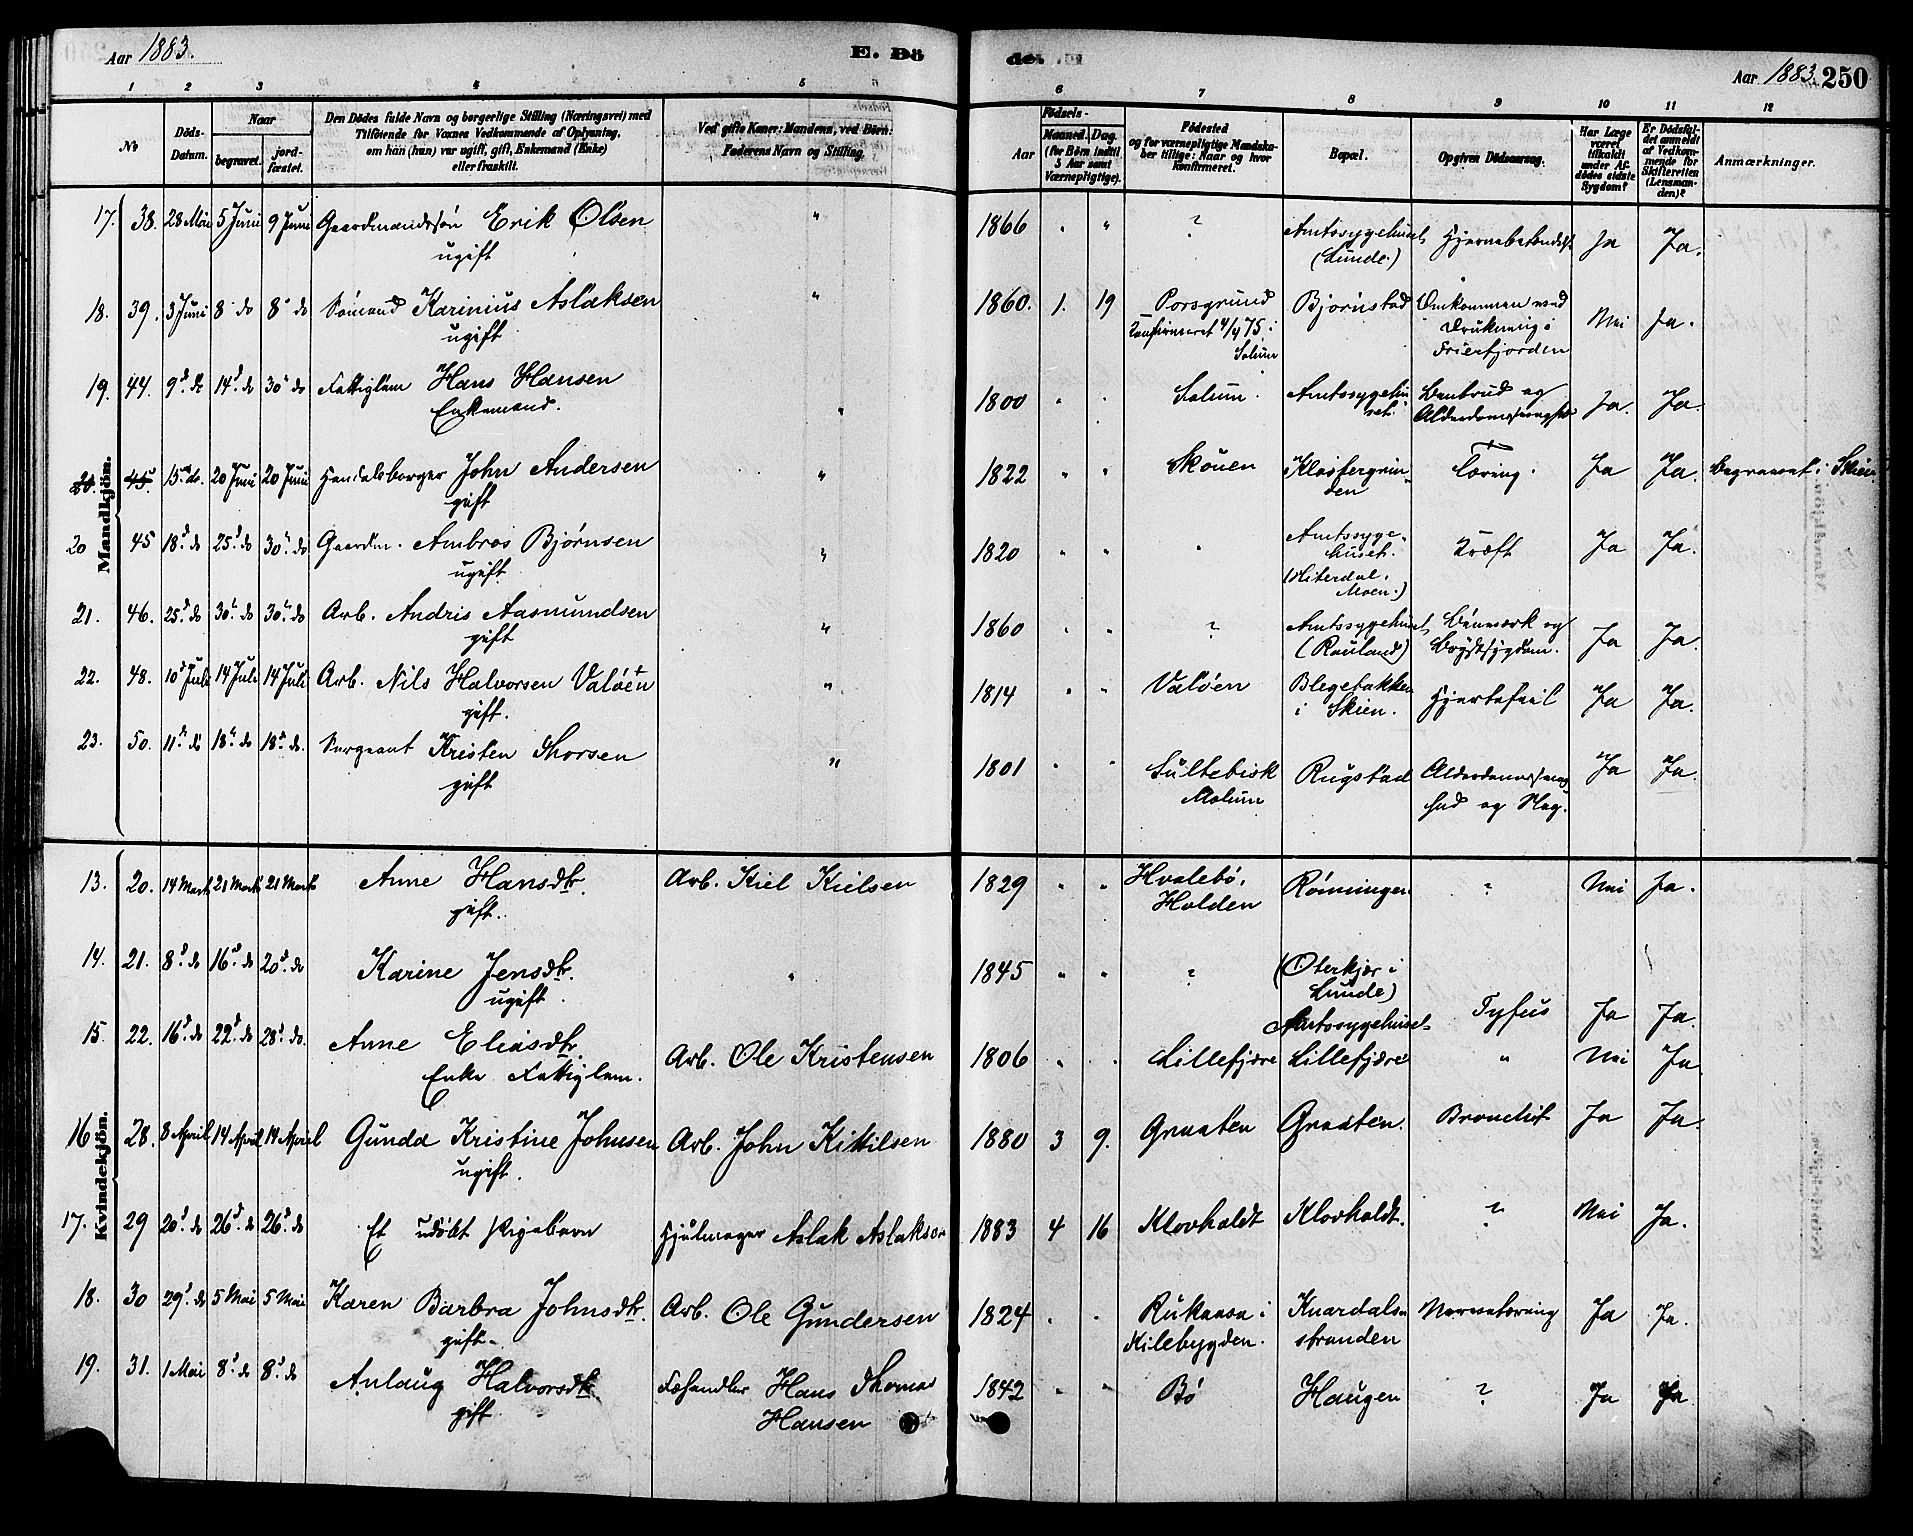 Aar 1883. E. Dö
de. Aar 1883. 250
1 2 3 4 5 6 7 8 9 10 11 12
No
Döds-Datum.
Naar
begravet. jordfæstet.
Den Dödes fulde Navn og borgerlige Stilling (Næringsvei) med
Tilföiende for Voxnes Vedkommende af Oplysning,
om han (hun) var ugift, gift, Enkemand (Enke)
eller fraskilt.
Ved gifte Koner: Mandens, ved Börn:
Faderens Navn og Stilling.
Födsels-
Aar
Maaned. Dag.
(for Börn indtil
5 Aar samt
Værnepligtige).
Födested
og for værnepligtige Mandska-
ber tillige: Naar og hvor
konfirmeret.
Bopæl.
Opgiven Dödsaarsag.
Har Læge
været
tilkaldt
under Af-
dödes sidste
Sygdom?
Er Dödsfal-
det anmeldt
af Vedkom-
mende for
Skifteretten
(Lensman-
den)?
Anmærkninger.
Mandkjön.
17. 38. 28 Mai 5 Juni 9 Juni Gaardmandssøn Erik Olsen " 1866 " " ? Amtssygehuset Ja Ja.
ugift (Lunde.)
18. 39. 3 Juni 8 do 8 do Sømand Karinius Aslaksen " 1860. 1. 19 Porsgrund Bjørnstad Omkommen ved Nei Ja.
ugift Konfirmeret 4/4 75 i Drukning i
Solum Frierfjorden
19. 44. 9d do 14d do 30d do Fattiglem Hans Hansen " 1800 " " Solum. Amtssygehu- og Ja. Ja.
Enkemand. set.
20. 45. 15d do. 20 Juni 20 Juni Handelsborger John Andersen " 1822 " " Skouen Klostergrin- Tæring. Ja Ja. Begravet i Skien
gift den
20 45 18d do 25d do 30d do Gaardm. Ambros Bjørnsen " 1820 " " " Amtssyge- Kræft Ja Ja.
ugift huset.
(Hiterdal.
Moen.)
21. 46. 25d do 30d do 30d do Arb. Andris Aasmundsen " 1860 " " ? Amtssygehuset og Ja Ja.
gift (Rauland) Brystsygdom.
22. 48. 10 Juli 14 Juli 14 Juli Arb. Nils Halvorsen Valøen " 1814 " " Valøen Blegebakken Hjertefeil Ja Ja.
gift. i Skien.
23. 50. 11d do 18d do 18d do. Sergeant Kristen Thorsen " 1801 " " Rugstad Alderdomssvag- Ja Ja.
gift hed og Slag.
Kvindekjön.
13. 20. 14 Marts 21 Marts 21 Marts Anne Hansdtr. Arb. Kiel Kielsen 1829 " " Hvalebø, Rønningen ? Nei Ja.
gift. Holden
14. 21. 8d do 16d do 20d do Karine Jensdtr. " 1845 " " ? (Oterkjær i
ugift. Lunde)
Amtssygehuset Tyfus Ja Ja.
15 22. 16d do 22d do 28d do Anne Eliasdtr. Arb. Ole Kristensen 1806 " " Lillefjære Lillefjære " Nei Ja.
Enke Fattiglem.
16 28. 8 April 14 April 14 April Gunda Kristine Johnsen Arb. John Kittilsen 1880 3 9. Graaten Graaten. Bronchit Ja Ja.
ugift.
17. 29 20d do 26d do 26d do Et udøbt Pigebarn Hjulmager Aslak Aslaksen 1883 4 16 Klovholdt Klovholdt. ? Nei Ja.
18. 30 29d do 5 Mai 5 Mai Karen Barbra Johnsdtr. Arb. Ole Gundersen 1824 " " Rukaasa i Knardals- Ja Ja.
gift. Kilebygden. stranden
19. 31. 1 Mai 8d do 8d do Anlaug Halvorsdtr. Fæhandler Hans Thomas 1842 " " Bø Haugen ? Ja Ja
gift Hansen